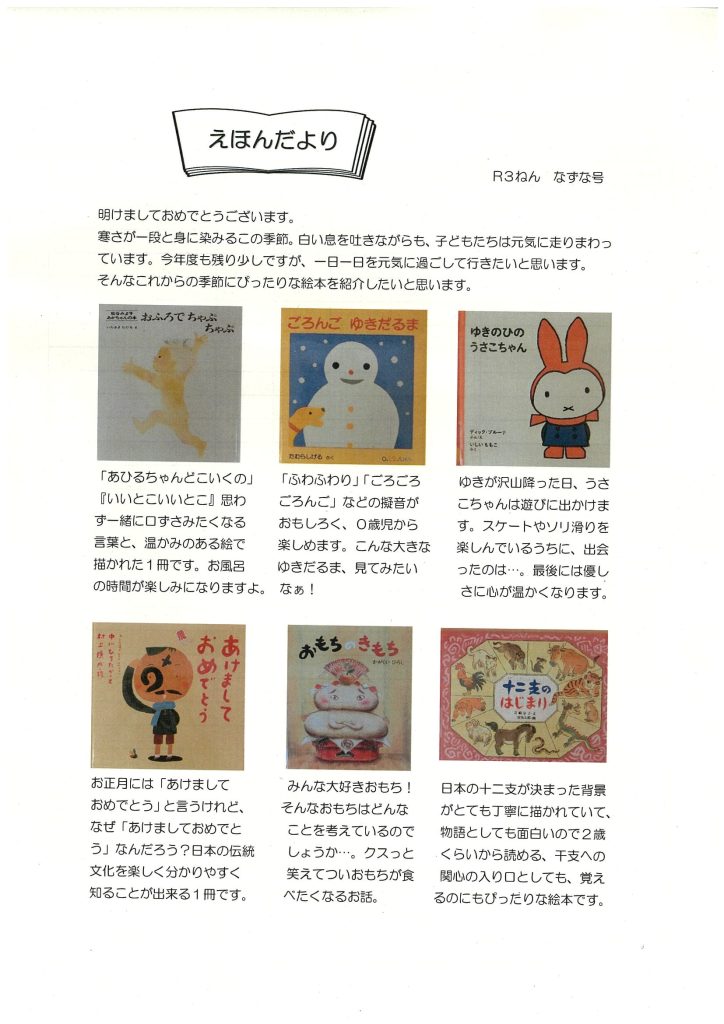 えほんだより
R3ねん なずな号
明けましておめでとうございます。
寒さが一段と身に染みるこの季節。白い息を吐きながらも、子どもたちは元気に走りまわっ
ています。今年度も残り少しですが、一日一日を元気に過ごして行きたいと思います。
そんなこれからの季節にぴったりな絵本を紹介したいと思います。
松谷みよ子
あかちゃんの本
おふろで ちゃぷ
ちゃぷ
ごろんご ゆきだるま
たむらしげる さく
ゆきのひの
うさこちゃん
ディック・ブルーナ
ぶん/え
いしい ももこ
やく
「あひるちゃんどこいくの」
『いいとこいいとこ』思わ
ず一緒に口ずさみたくなる
言葉と、温かみのある絵で
描かれた1冊です。お風呂
の時間が楽しみになりますよ。
「ふわふわり」「ごろごろ
ごろんご」などの擬音が
おもしろく、0歳児から
楽しめます。こんな大きな
ゆきだるま、見てみたい
なぁ!
ゆきが沢山降った日、うさ
こちゃんは遊びに出かけま
す。スケートやソリ滑りを
楽しんでいるうちに、出会
ったのは…。最後には優し
さに心が温かくなります。
あけまして
おめでとう
おもちのきもち
かがくい ひろし
十二支の
はじまり
お正月には「あけまして
おめでとう」と言うけれど、
なぜ「あけましておめでと
う」なんだろう?日本の伝統
文化を楽しく分かりやすく
知ることが出来る1冊です。
みんな大好きおもち!
そんなおもちはどんな
ことを考えているので
しょうか…。クスっと
笑えてついおもちが食
べたくなるお話。
日本の十二支が決まった背景
がとても丁寧に描かれていて、
物語としても面白いので2歳
くらいから読める、干支への
関心の入り口としても、覚え
るのにもぴったりな絵本です。